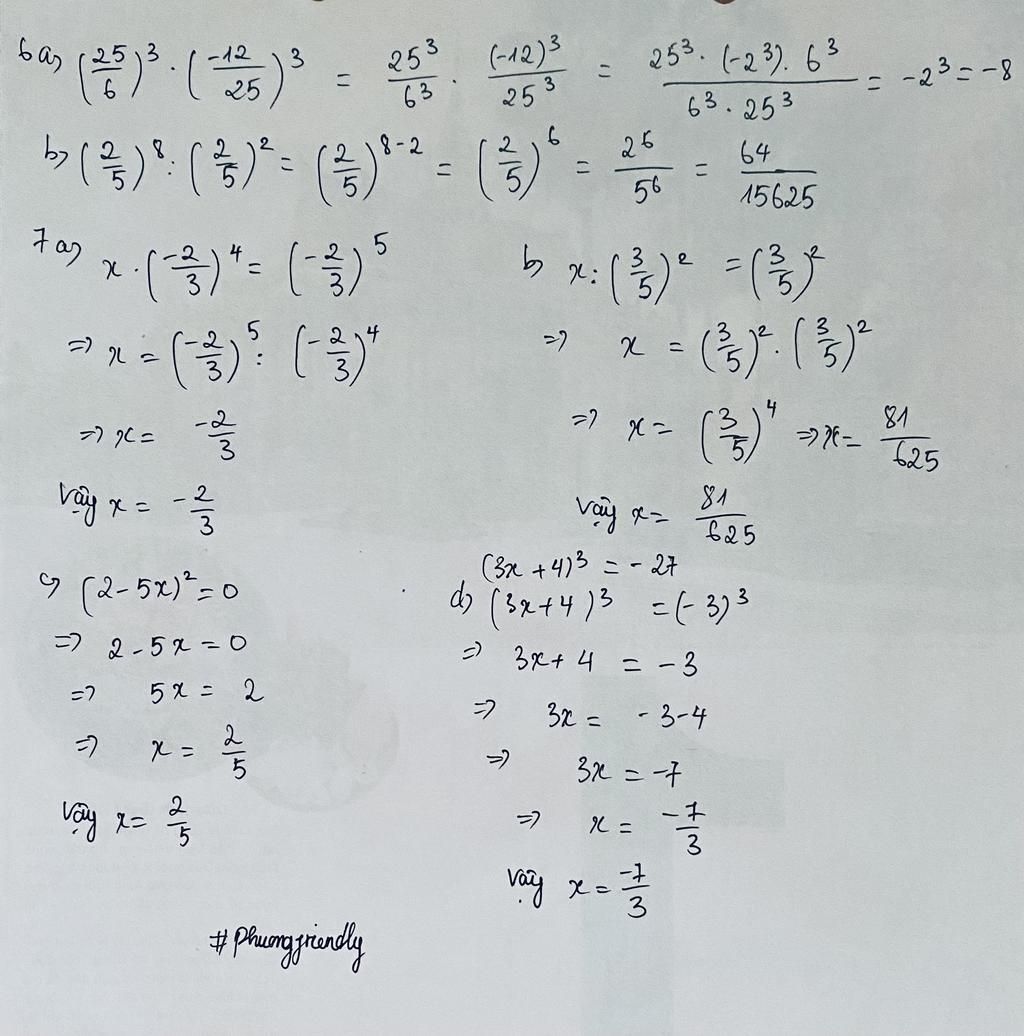 6 a) (25/6)³ . (-12/25)³ = 25³/6³ . (-12)³/25³ = 25³ . (-2³) . 6³ / 6³ . 25³ = -2³ = -8
b) (2/5)⁸ : (2/5)² = (2/5)⁸⁻² = (2/5)⁶ = 2⁶/5⁶ = 64/15625
7 a) x . (-2/3)⁴ = (-2/3)⁵
=> x = (-2/3)⁵ : (-2/3)⁴
=> x = -2/3
Vậy x = -2/3
b) x : (3/5)² = (3/5)²
=> x = (3/5)² . (3/5)²
=> x = (3/5)⁴ => x = 81/625
Vậy x = 81/625
c) (2-5x)² = 0
=> 2-5x = 0
=> 5x = 2
=> x = 2/5
Vậy x = 2/5
(3x+4)³ = -27
d) (3x+4)³ = (-3)³
=> 3x+4 = -3
=> 3x = -3-4
=> 3x = -7
=> x = -7/3
Vậy x = -7/3
#Phuongfriendly